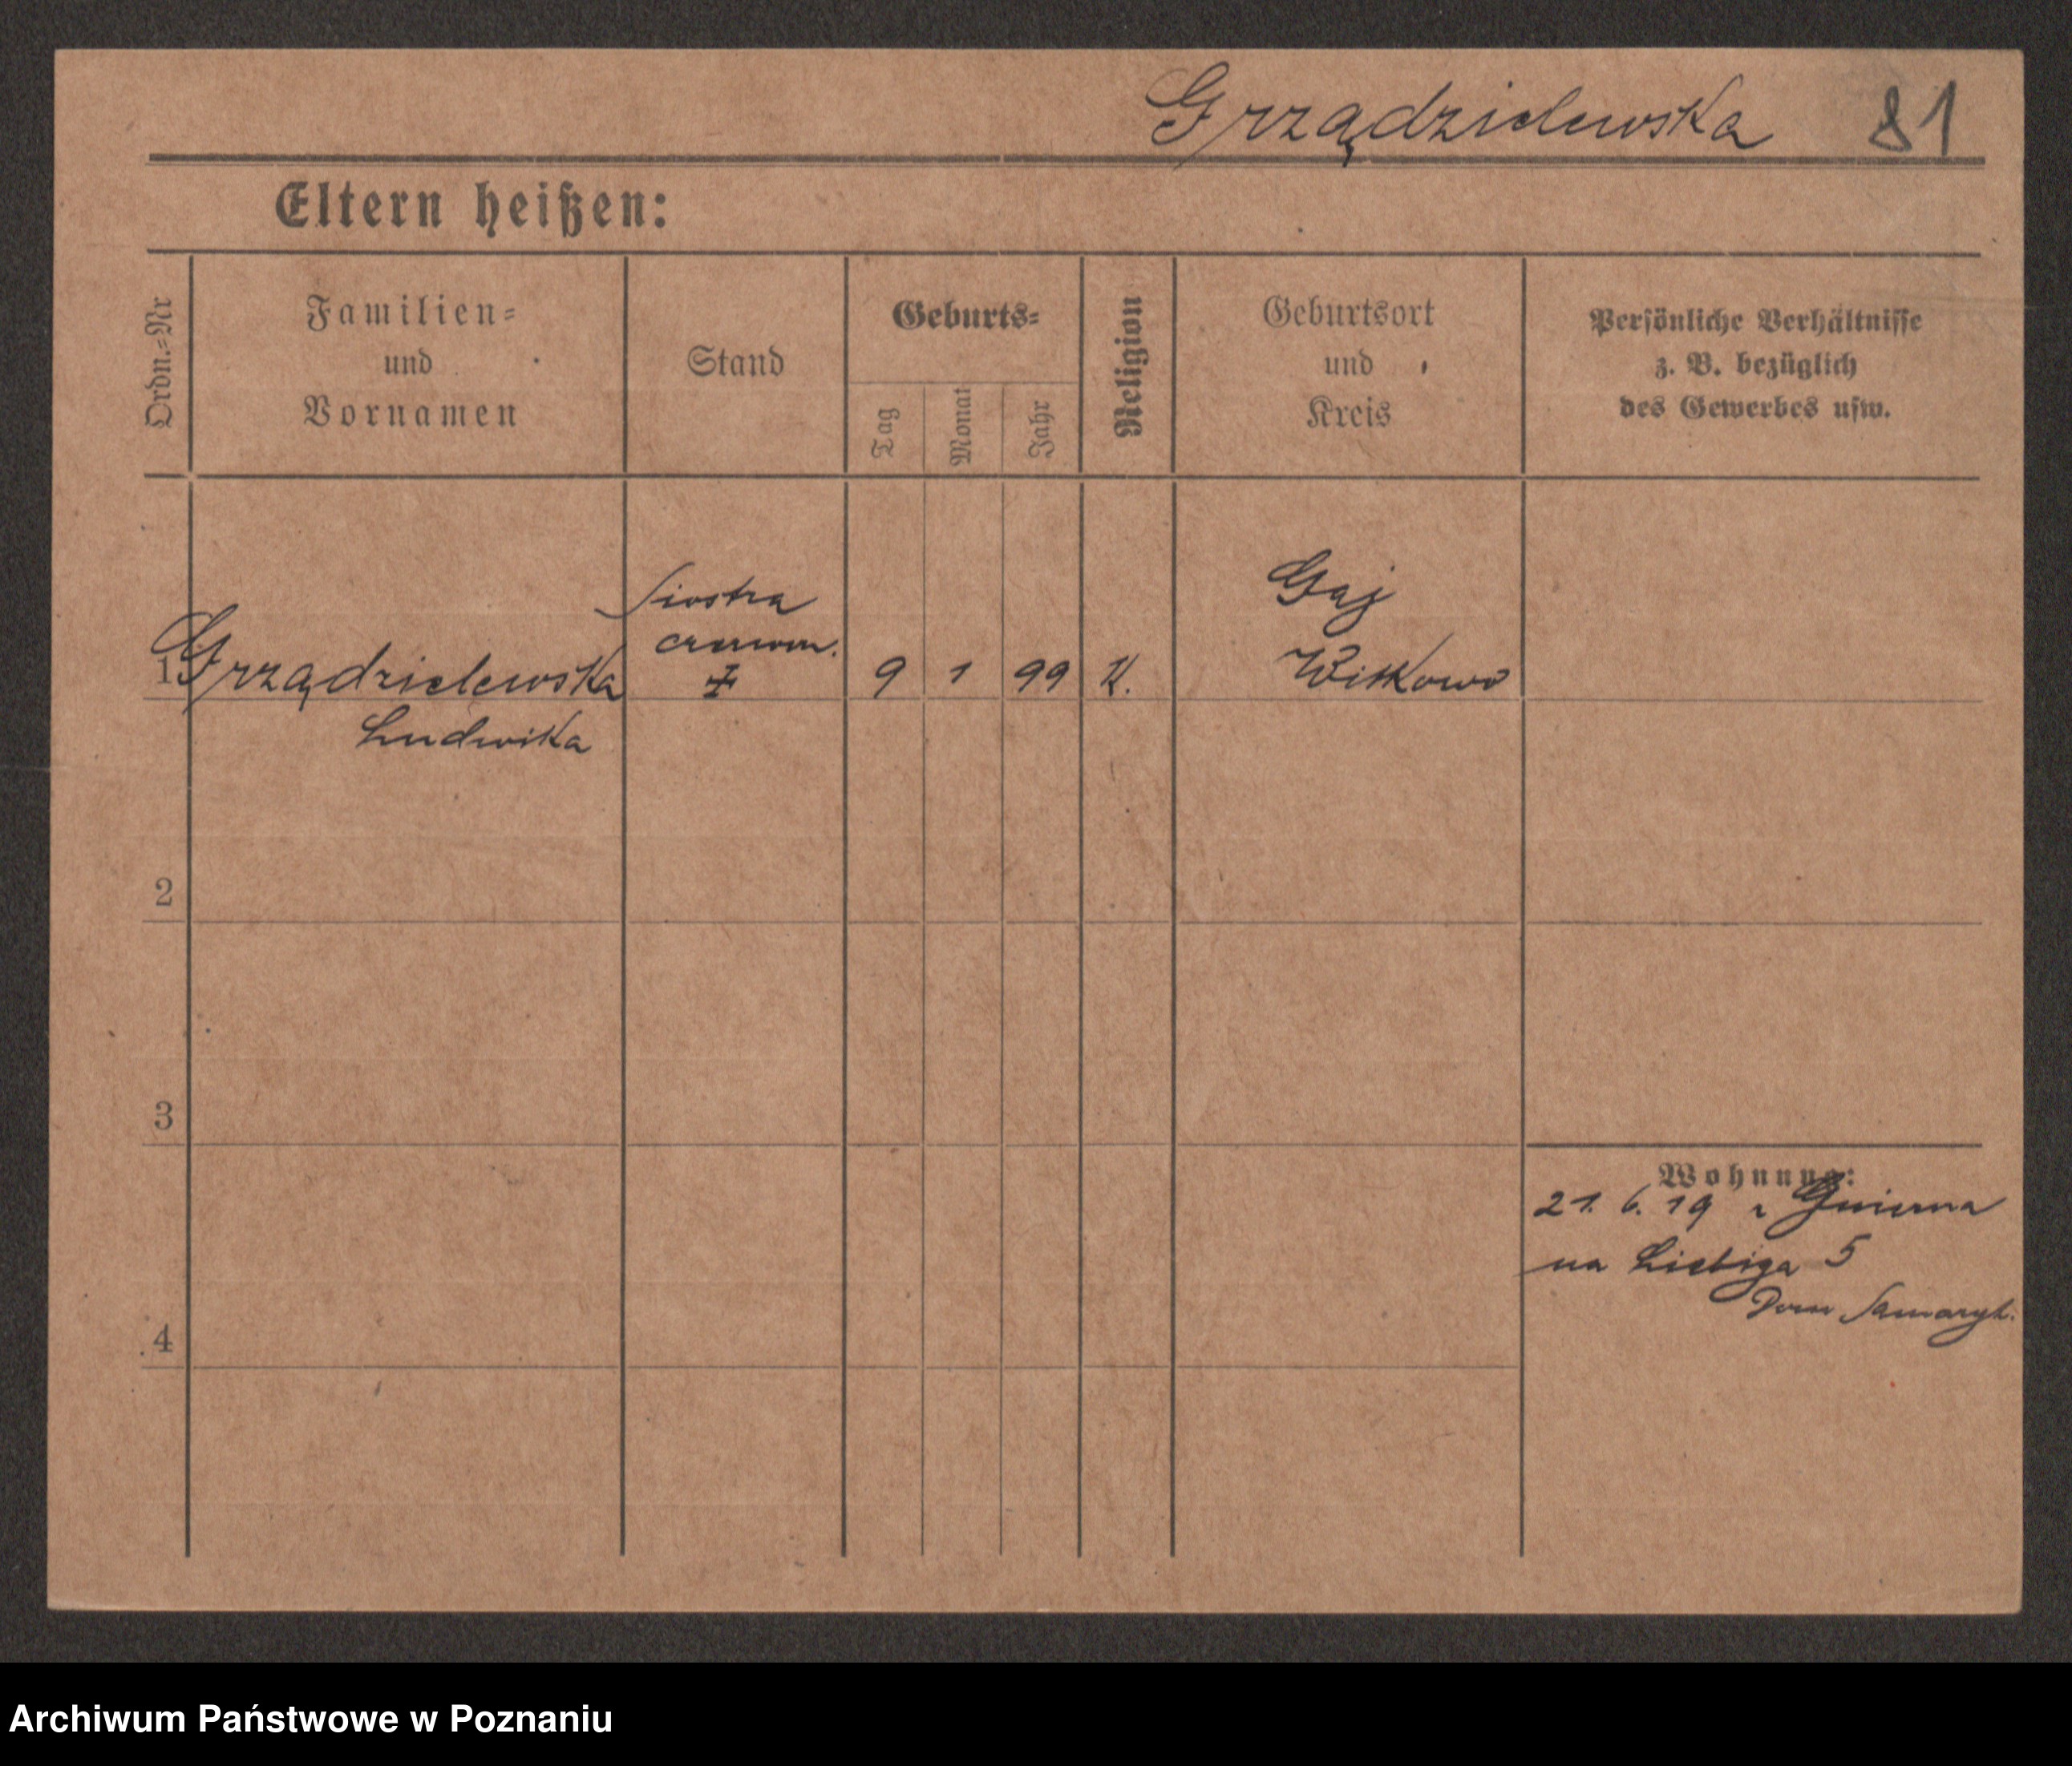 Grządzielewska 81
Eltern heißen:
Ordn.-Nr
Familien-
und
Vornamen
Stand
Geburts-
Tag
Monat
Jahr
Religion
Geburtsort
und
Kreis
Persönliche Verhältnisse
z. B. bezüglich
des Gewerbes usw.
1
Grządzielewska
Ludwika
Siostra
czerwon.
9 1 99 K.
Gaj
Witkowo
2
3
4
Wohnung:
21. 6. 19 z
na Liebiga 5
Dom Samaryt.
Archiwum Państwowe w Poznaniu